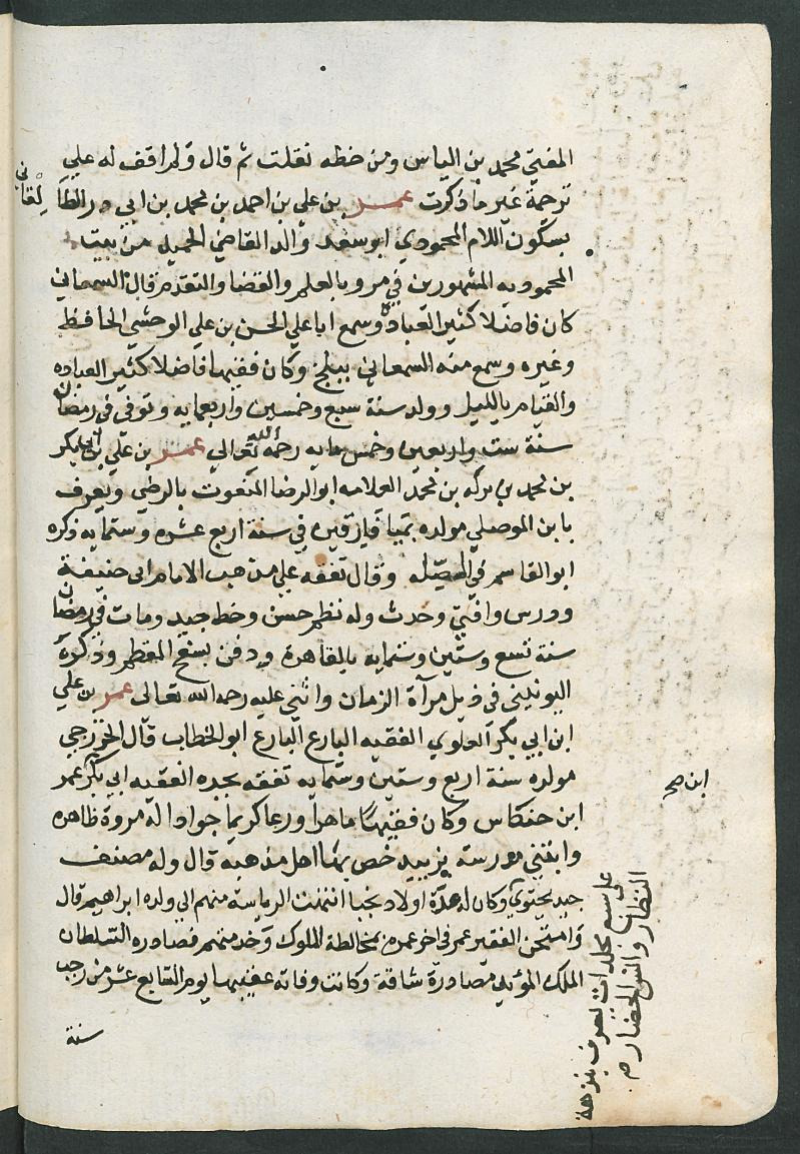 المفتي محمد بن الياس ومن خطه نقلت ثم قال ولم اقف له علي
ترجمة غير ما ذكرت عمر بن علي بن احمد بن محمد بن ابي در الطا لقاني
بسكون اللام المحمودي ابو سعد والد القاضي الحميد من بيت
المحموديه المشهورين في مرو بالعلم والقضا والتقدم قال السمعاني
كان فاضلا كثير العبادة وسمع ابا علي الحسن بن علي الوحشي الحافظ
وغيره وسمع منه السمعاني ببلخ وكان فقيها فاضلا كثير العباده
والقيام بالليل وولد سنة سبع وخمسين واربعمايه وتوفي في رمضان
سنة ست واربعين وخمس مايه رحمه الله تعالي عمر بن علي بن ابي بكر
بن محمد بن بركه بن محمد العلامه ابو الرضا المنعوت بالرضي ويعرف
با بن الموصلي مولده بميا فارقين في سنة اربع عشره وستمايه ذكره
ابو القاسم في وقال تفقه علي مذهب الامام ابي حنيفة
ودرس وافتي وحدث وله نظم حسن وخط جيد ومات في رمضان
سنة تسع وستين وستمايه بالقاهرة ودفن بسفح المقطم وذكره
اليونيني في ذيل مرآة الزمان واثني عليه رحمه الله تعالى عمر بن علي
ابن ابي بكر العلوي الفقيه البارع البارع ابو الخطاب قال الخزرجي
مولده سنة اربع وستين وستمايه تفقه بجده الفقيه ابي بكر عمر
ابن حنكاس وكان فقيها ماهرا ورعا كريما جوادا له مروة ظاهره
وابتني مدرسة بزبيد خص بها اهل مذهبه قال وله مصنف
جيد يحتوي وكان له عدة اولاد نجبا انتهت الرياسة منهم الي ولده ابراهيم قال
وامتحن الفقير عمر في اخر عمره من مخالطة الملوك وخدمتهم فصادره السلطان
الملك المؤيد مصادرة شاقة وكانت وفاته عقيبها يوم السابع عشر من رجب
سنة
ابن صح
علي سبع مجلدات تعرف بنزهة
النظار والخضار م